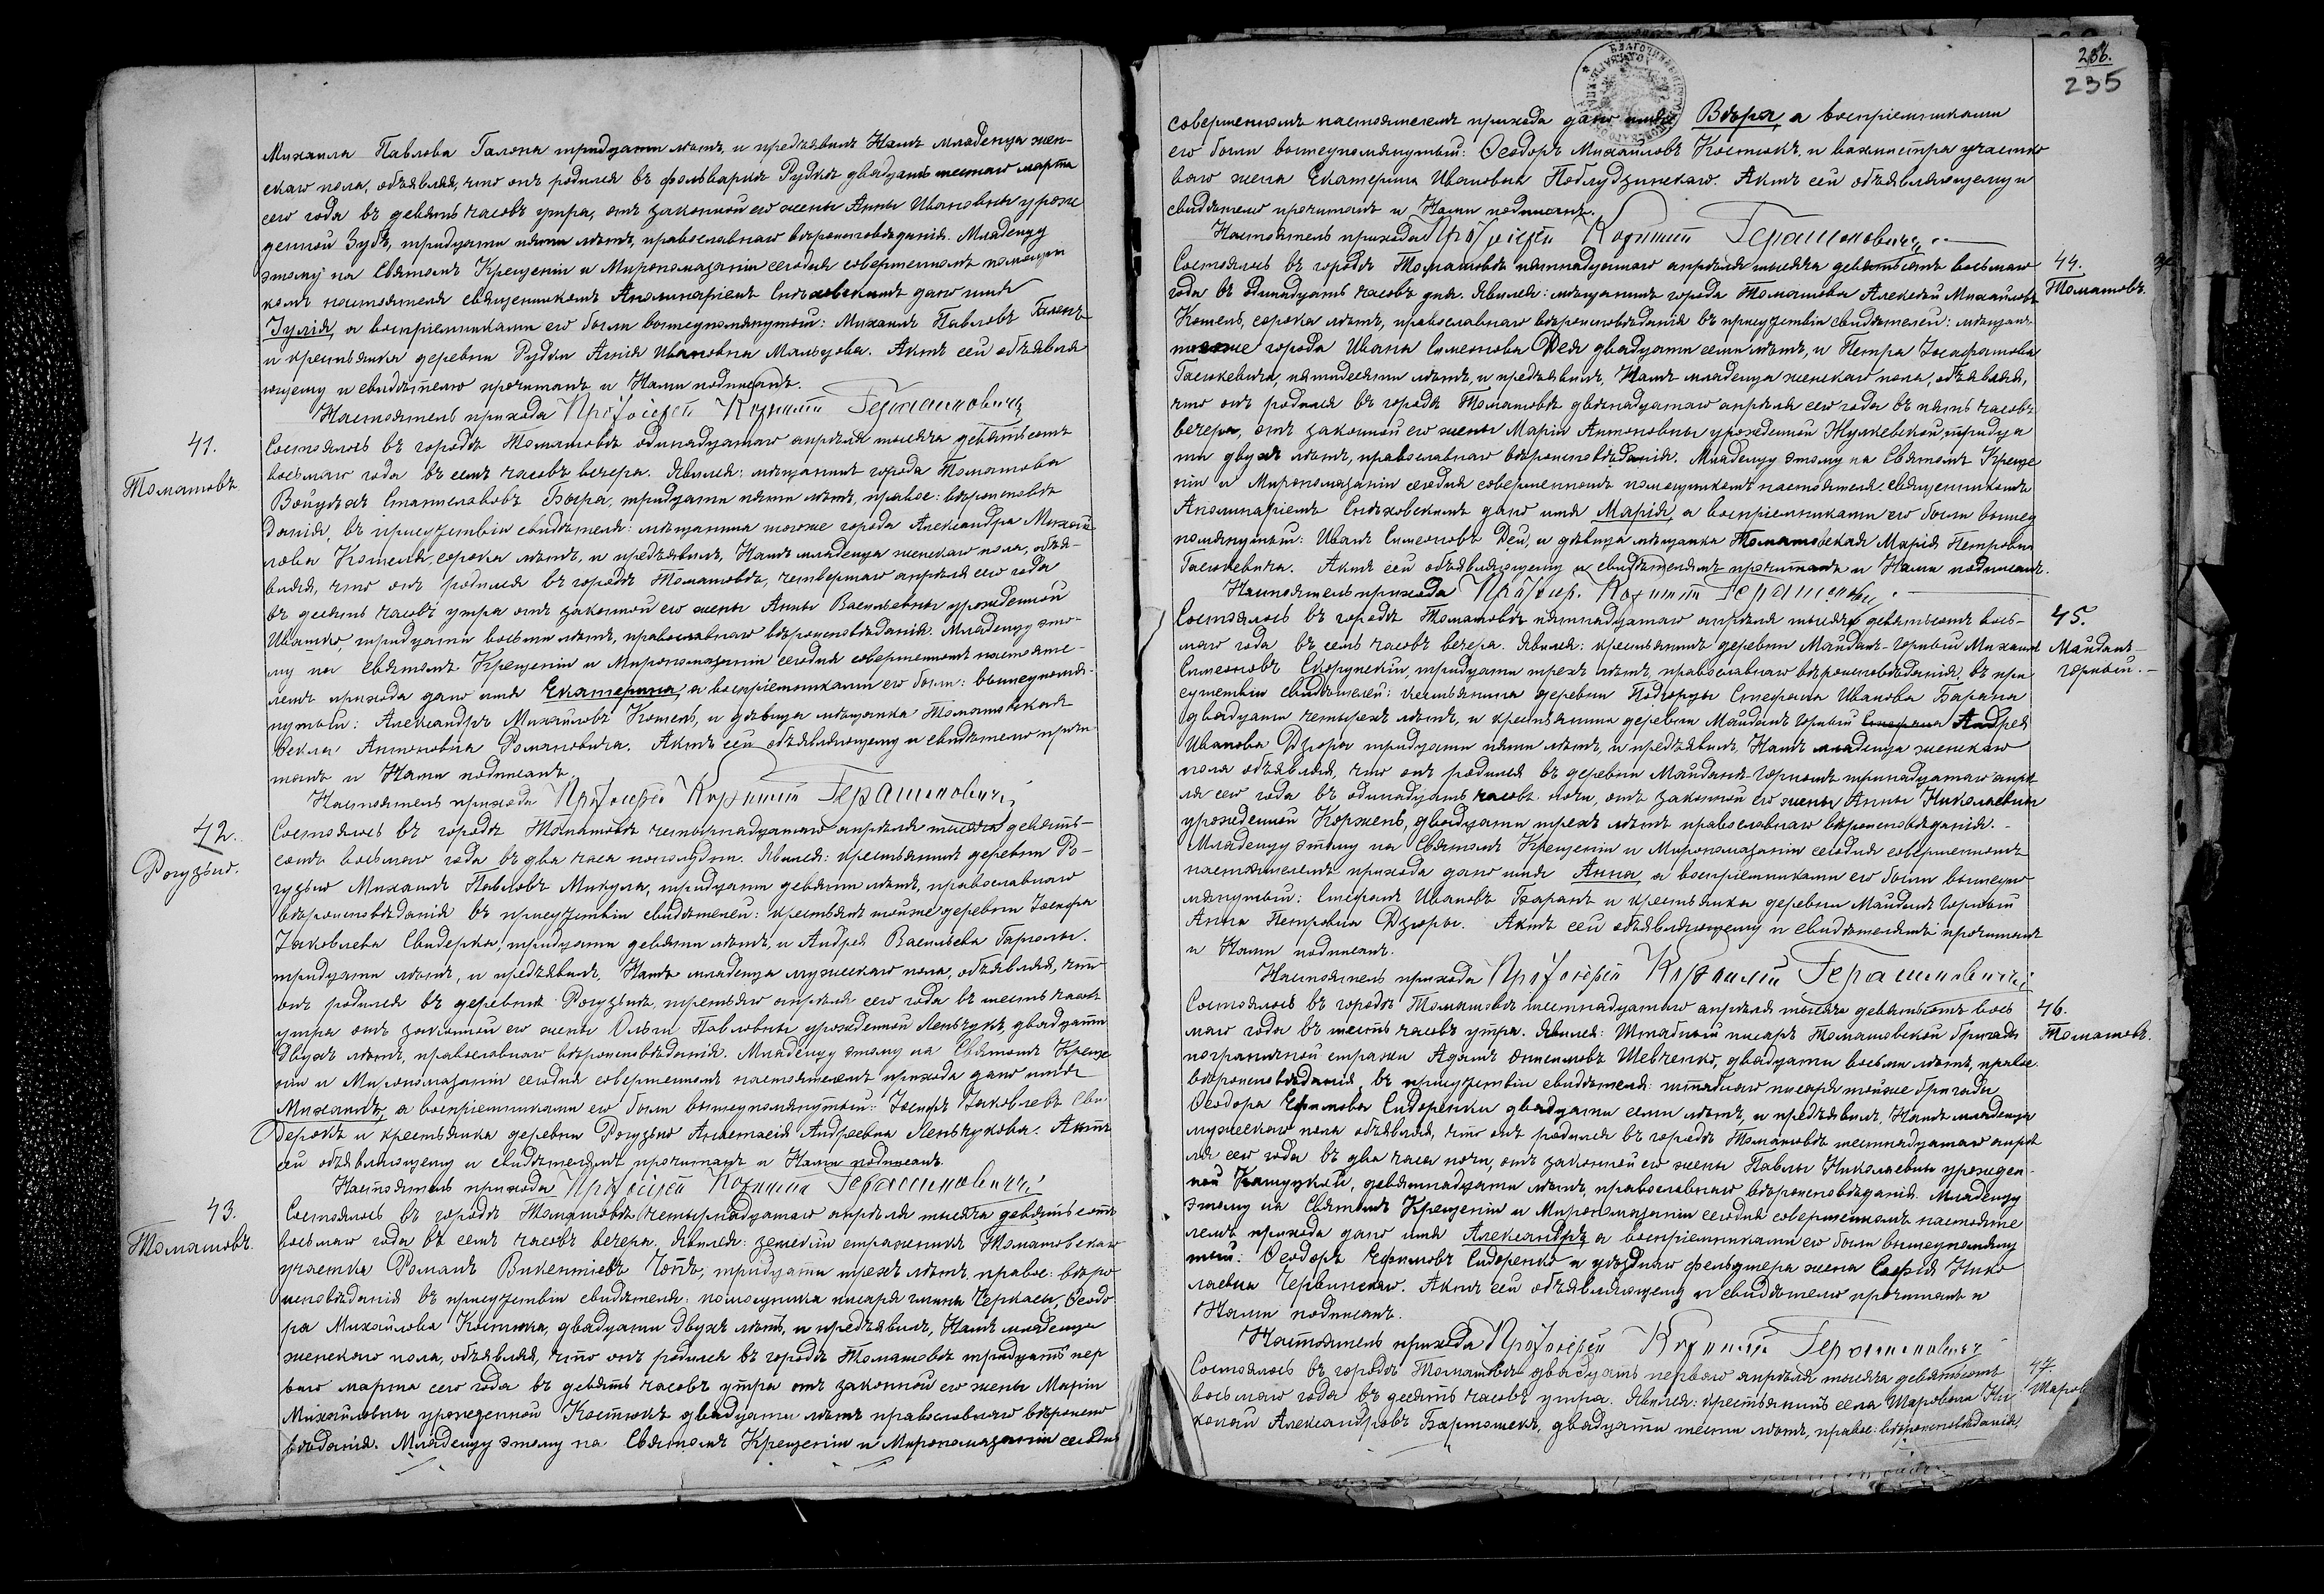 Михаила Павлова Галона тридцати лѣтъ, и предъявилъ Намъ младенца жен-
скаго пола, объявляя, что онъ родился въ фольваркѣ Рудкѣ двадцать шестаго марта
сего года въ девять часовъ утра, отъ законной его жены Анны Ивановны урож
денной Зубъ, тридцати пяти лѣтъ, православнаго вѣроисповѣданія. Младенцу
этому на Святомъ Крещеніи и Миропомазаніи сегодня совершенномъ помощни
комъ настоятеля священникомъ Аполинаріемъ Снѣховскимъ дано имя
Іулія, а воспріемниками его были вышеупомянутый: Михаилъ Павловъ Галонъ
и крестьянка деревни Рудки Анна Ивановна Мальцова. Актъ сей объявля
ющему и свидѣтелю прочитанъ и Нами подписанъ.
Настоятель прихода Протоіерей Корнилій Герашиновичъ
41.
Томашовъ.
Состоялось въ городѣ Томашовѣ одинадцатаго апрѣля тысяча девятьсотъ
восьмаго года въ семь часовъ вечера. Явился: мѣщанинъ города Томашова
Войцѣхъ Станиславовъ Бѣгра, тридцати пяти лѣтъ, правос: вѣроисповѣ
данія, въ присутствіи свидѣтеля: мѣщанина тогоже города Александра Михай-
лова Котеля, сорока лѣтъ, и предъявилъ Намъ младенца женскаго пола, объя-
вляя, что онъ родился въ городѣ Томашовѣ, четвертаго апрѣля сего года
въ десять часовъ утра отъ законной его жены Анны Васильевны урожденной
Ивашко, тридцати восьми лѣтъ, православнаго вѣроисповѣданія. Младенцу это-
му на Святомъ Крещеніи и Миропомазаніи сегодня совершенномъ настояте-
лемъ прихода дано имя Екатерина, а воспріемниками его были: вышеупомя-
нутый: Александръ Михайловъ Котель, и дѣвица мѣщанка Томашовская
Ѳекла Антоновна Романовича. Актъ сей объявляющему и свидѣтелю прочи-
танъ и Нами подписанъ.
Настоятель прихода Протоіерей Корнилій Герашиновичъ
42.
Рогузьно.
Состоялось въ городѣ Томашовѣ четырнадцатаго апрѣля тысяча девять-
сотъ восьмаго года въ два часа пополудни. Явился: крестьянинъ деревни Ро-
гузьно Михаилъ Павловъ Микула, тридцати девяти лѣтъ, православнаго
вѣроисповѣданія въ присутствіи свидѣтелей: крестьянъ тойже деревни Іосифа
Іаковлева Свидерка, тридцати девяти лѣтъ, и Андрея Васильева Гармолы
тридцати лѣтъ, и предъявилъ Намъ младенца мужескаго пола, объявляя, что
онъ родился въ деревнѣ Рогузьнѣ третьяго апрѣля сего года въ шесть часовъ
утра отъ законной его жены Ольги Павловны урожденной Леньчукъ, двадцати
двухъ лѣтъ, православнаго вѣроисповѣданія. Младенцу этому на Святомъ Креще
ніи и Миропомазаніи сегодня совершенномъ настоятелемъ прихода дано имя
Михаилъ, а воспріемниками его были вышеупомянутый: Іосифъ Іаковлевъ Сви
дерокъ и крестьянка деревни Рогузьно Анастасія Андреевна Леньчукова. Актъ
сей объявляющему и свидѣтелямъ прочитанъ и Нами подписанъ.
Настоятель прихода Протоіерей Корнилій Герашиновичъ
43.
Томашовъ.
Состоялось въ городѣ Томашовѣ четырнадцатаго апрѣля тысяча девятьсотъ
восьмаго года въ семь часовъ вечера. Явился: земскій стражникъ Томашовскаго
участка Романъ Викентіевъ Чопъ, тридцати трехъ лѣтъ, правос: вѣро
исповѣданія въ присутствіи свидѣтеля: помощника писаря гмины Черкасы, Ѳеодо
ра Михайлова Костюка, двадцати двухъ лѣтъ, и предъявилъ, Намъ младенца
женскаго пола, объявляя, что онъ родился въ городѣ Томашовѣ тридцать пер
ваго марта сего года въ девять часовъ утра отъ законной его жены Маріи
Михайловны урожденной Костюкъ двадцати лѣтъ православнаго вѣроиспо
вѣданія. Младенцу этому на Святомъ Крещеніи и Миропомазаніи сегодня
236.
235
совершенномъ настоятелемъ прихода дано имя Вѣра, а воспріемниками
его были вышеупомянутый: Ѳеодоръ Михайловъ Костюкъ, и вахмистра участко
ваго жена Екатерина Ивановна Поблудзинскаго. Актъ сей объявляющему и
свидѣтелю прочитанъ и Нами подписанъ.
Настоятель прихода Протоіерей Корнилій Герашиновичъ
44.
Томашовъ.
Состоялось въ городѣ Томашовѣ пятнадцатаго апрѣля тысяча девятьсотъ восьмаго
года въ одинадцать часовъ дня. Явился: мѣщанинъ города Томашова Алексѣй Михайловъ
Котель, сорока лѣтъ, православнаго вѣроисповѣданія въ присутствіи свидѣтелей: мѣщанъ
тогоже города Ивана Симеонова Дея двадцати семи лѣтъ, и Петра Іосафатова
Гаськевича, пятидесяти лѣтъ, и предъявилъ, Намъ младенца женскаго пола, объявляя,
что онъ родился въ городѣ Томашовѣ двѣнадцатаго апрѣля сего года въ пять часовъ
вечера, отъ законной его жены Маріи Антоновны урожденной Жулкевской, тридца
ти двухъ лѣтъ, православнаго вѣроисповѣданія. Младенцу этому на Святомъ Креще
ніи и Миропомазаніи сегодня совершенномъ помощникомъ настоятеля священникомъ
Аполинаріемъ Снѣховскимъ дано имя Марія, а воспріемниками его были вышеу
помянутый: Иванъ Симеоновъ Дей, и дѣвица мѣщанка Томашовская Марія Петровна
Гаськевича. Актъ сей объявляющему и свидѣтелямъ прочитанъ и Нами подписанъ.
Настоятель прихода Протоіер. Корнилій Герашиновичъ
45.
Майданъ-
Горный.
Состоялось въ городѣ Томашовѣ пятнадцатаго апрѣля тысяча девятьсотъ вось-
маго года въ семь часовъ вечера. Явился: крестьянинъ деревни Майданъ-Горный Михаилъ
Симеоновъ Скорупскій, тридцати трехъ лѣтъ, православнаго вѣроисповѣданія, въ при
сутствіи свидѣтелей: крестьянина деревни Подгорцы Стефана Иванова Барана
двадцати четырехъ лѣтъ, и крестьянина деревни Майданъ Горный Стефана Андрея
Иванова Дзюры тридцати пяти лѣтъ, и предъявилъ, Намъ младенца женскаго
пола объявляя, что онъ родился въ деревни Майданѣ-Горномъ тринадцатаго апрѣ
ля сего года въ одинадцать часовъ ночи, отъ законной его жены Анны Николаевны
урожденной Коржень, двадцати трехъ лѣтъ православнаго вѣроисповѣданія.
Младенцу этому на Святомъ Крещеніи и Миропомазаніи сегодня совершенномъ
настоятелемъ прихода дано имя Анна а воспріемниками его были вышеупо
мянутый: Стефанъ Ивановъ Баранъ и крестьянка деревни Майданъ Горный
Анна Петровна Дзюры. Актъ сей объявляющему и свидѣтелямъ прочитанъ
и Нами подписанъ.
Настоятель прихода Протоіерей Корнилій Герашиновичъ
46.
Томашовъ.
Состоялось въ городѣ Томашовѣ шестнадцатаго апрѣля тысяча девятьсотъ вось
маго года въ шесть часовъ утра. Явился: Штабный писарь Томашовской бригады
пограничной стражи Адамъ Онисимовъ Шевченко, двадцати восьми лѣтъ, правос.
вѣроисповѣданія, въ присутствіи свидѣтеля: штабнаго писаря тойже бригады
Ѳеодора Ефимова Сидоренки двадцати семи лѣтъ, и предъявилъ, Намъ младенца
мужескаго пола объявляя, что онъ родился въ городѣ Томашовѣ шестнадцатаго апрѣ
ля сего года въ два часа ночи, отъ законной его жены Павлы Николаевны урожден-
ной Кашуцкой, девятнадцати лѣтъ, православнаго вѣроисповѣданія. Младенцу
этому на Святомъ Крещеніи и Миропомазаніи сегодня совершенномъ настояте
лемъ прихода дано имя Александръ а воспріемниками его были вышеупомяну
тый: Ѳеодоръ Ефимовъ Сидоренко и уѣзднаго фельдшера жена Софія Нико
лаевна Червинскаго. Актъ сей объявляющему и свидѣтелю прочитанъ и
Нами подписанъ.
Настоятель прихода Протоіерей Корнилій Герашиновичъ
47
Шаров
Состоялось въ городѣ Томашовѣ двадцать перваго апрѣля тысяча девятьсотъ
восьмаго года въ десять часовъ утра. Явился: крестьянинъ села Шаровола Ни
колай Александровъ Бартошекъ, двадцати шести лѣтъ, правос: вѣроисповѣданія,